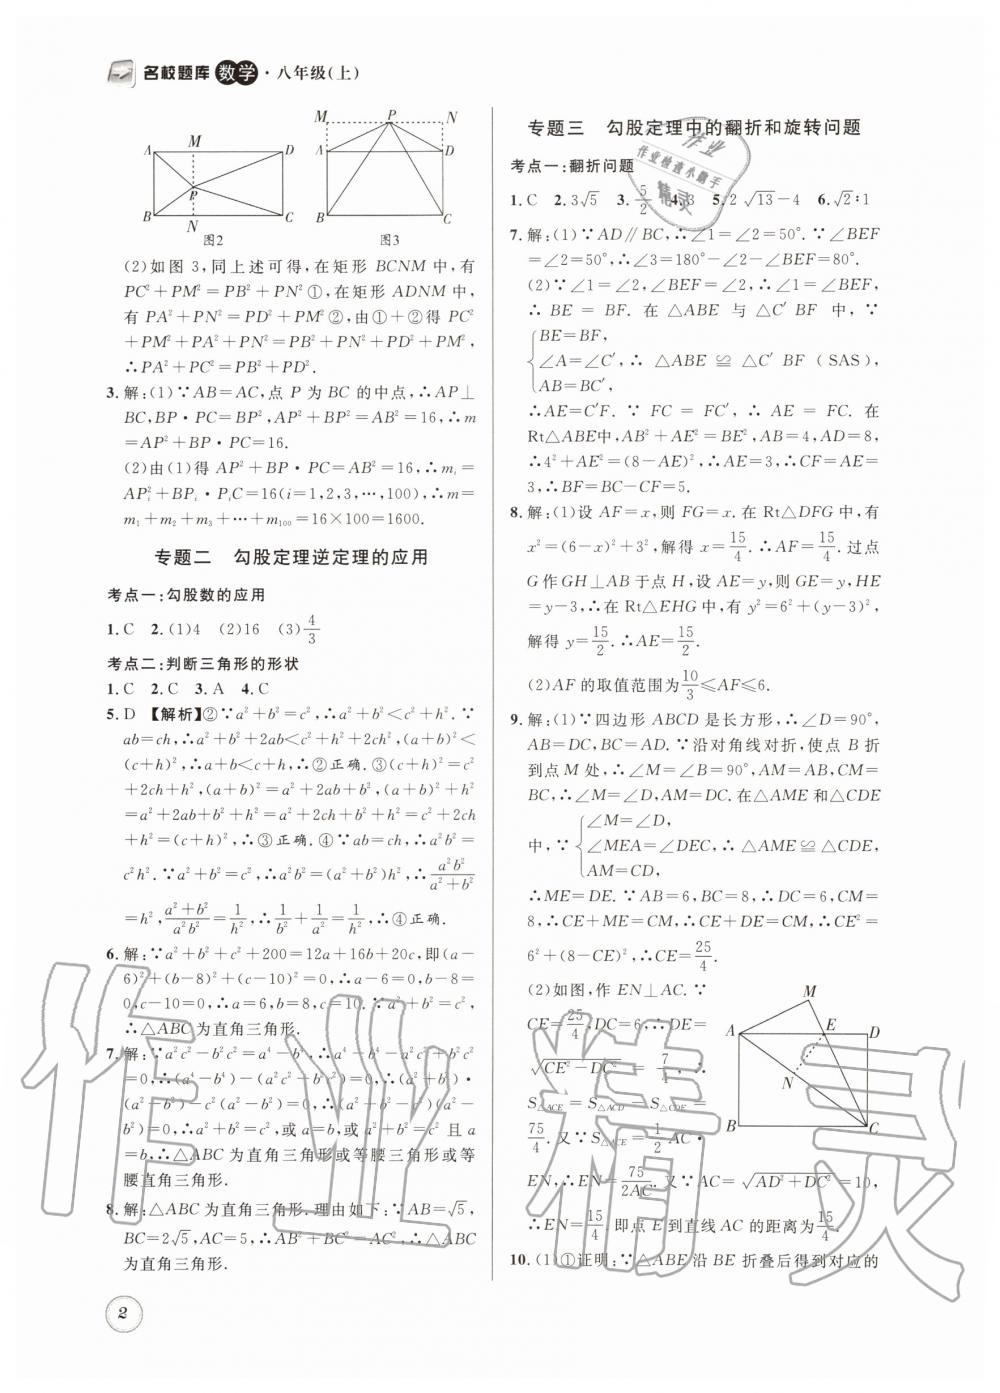 名校题库 数学·八年级(上)
M
A
D
P
B
C
N
图2
M
P
N
A
D
B
C
图3
(2)如图 3,同上述可得,在矩形 BCNM 中,有
PC²+PM²=PB²+PN²①,在矩形 ADNM 中,
有 PA²+PN²=PD²+PM²②,由①+②得 PC²
+PM²+PA²+PN²=PB²+PN²+PD²+PM²,
∴PA²+PC²=PB²+PD².
3. 解:(1)∵AB=AC,点 P 为 BC 的中点,∴AP⊥
BC,BP·PC=BP²,AP²+BP²=AB²=16,∴m
=AP²+BP·PC=16.
(2)由(1)得 AP²+BP·PC=AB²=16,∴mᵢ=
APᵢ²+BPᵢ·PᵢC=16(i=1,2,3,…,100),∴m=
m₁+m₂+m₃+…+m₁₀₀=16×100=1600.
专题二 勾股定理逆定理的应用
考点一:勾股数的应用
1. C 2. (1)4 (2)16 (3)4/3
考点二:判断三角形的形状
1. C 2. C 3. A 4. C
5. D 【解析】②∵a²+b²=c²,∴a²+b²<c²+h².∵
ab=ch,∴a²+b²+2ab<c²+h²+2ch,(a+b)²<
(c+h)²,∴a+b<c+h,∴②正确.③(c+h)²=c²
+2ch+h²,(a+b)²+h²=a²+2ab+b²+h²
=a²+2ab+b²+h²=a²+2ch+b²+h²=c²+2ch
+h²=(c+h)²,∴③正确.④∵ab=ch,∴a²b²=
c²h².∵a²+b²=c²,∴a²b²=(a²+b²)h²,∴a²b²/(a²+b²)
=h²,(a²+b²)/(a²b²)=1/h²,∴1/a²+1/b²=1/h²,∴④正确.
6. 解:∵a²+b²+c²+200=12a+16b+20c,即(a-
6)²+(b-8)²+(c-10)²=0,∴a-6=0,b-8=
0,c-10=0,∴a=6,b=8,c=10.∵a²+b²=c²,
∴△ABC 为直角三角形.
7. 解:∵a²c²-b²c²=a⁴-b⁴,∴a⁴-b⁴-a²c²+b²c²
=0,∴(a⁴-b⁴)-(a²c²-b²c²)=0,∴(a²+b²)·
(a²-b²)-c²(a²-b²)=0,∴(a²+b²-c²)(a²
-b²)=0,∴a²+b²=c²,或a=b,或a²+b²=c² 且 a
=b,∴△ABC 为直角三角形或等腰三角形或等
腰直角三角形.
8. 解:△ABC 为直角三角形.理由如下:∵AB=√5,
BC=2√5,AC=5,∴AB²+BC²=AC²,∴△ABC
为直角三角形.
2
专题三 勾股定理中的翻折和旋转问题
考点一:翻折问题
1. C 2. 3√5 3. 5/2 4. 3 5. 2√13-4 6. √2∶1
7. 解:(1)∵AD∥BC,∴∠1=∠2=50°.∵∠BEF
=∠2=50°,∴∠3=180°-∠2-∠BEF=80°.
(2)∵∠1=∠2,∠BEF=∠2,∴∠1=∠BEF,
∴BE=BF.在△ABE 与△C′BF 中,∵
BE=BF,
∠A=∠C′,∴△ABE≌△C′BF(SAS),
AB=BC′,
∴AE=C′F.∵FC=FC′,∴AE=FC.在
Rt△ABE中,AB²+AE²=BE²,AB=4,AD=8,
∴4²+AE²=(8-AE)²,∴AE=3,∴CF=AE=
3,∴BF=BC-CF=5.
8. 解:(1)设 AF=x,则 FG=x.在 Rt△DFG 中,有
x²=(6-x)²+3²,解得 x=15/4.∴AF=15/4.过点
G作 GH⊥AB 于点 H,设 AE=y,则 EG=y,HE
=y-3.在 Rt△EHG 中,有 y²=6²+(y-3)²,
解得 y=15/2.∴AE=15/2.
(2)AF 的取值范围为10/3≤AF≤6.
9. 解:(1)∵四边形 ABCD 是长方形,∴∠D=90°,
AB=DC,BC=AD.∵沿对角线对折,使点 B 折
到点 M 处,∴∠M=∠B=90°,AM=AB,CM=
BC,∴∠M=∠D,AM=DC.在△AME 和△CDE
∠M=∠D,
中,∵ ∠MEA=∠DEC,∴△AME≌△CDE,
AM=CD,
∴ME=DE.∵AB=6,BC=8,∴DC=6,CM=
8,∴CE+ME=CM,∴CE+DE=CM,∴CE²=
6²+(8-CE)²,∴CE=25/4.
(2)如图,作 EN⊥AC.∵
CE=25/4,DC=6,∴DE=
√(CE²-DC²)=7/4,∴
S△ACE=S△ACD-S△CDE=
75/4.又∵S△ACE=1/2AC·
EN,∴EN=75/2AC.又∵AC=√(AD²+DC²)=10,
∴EN=15/4.即点 E 到直线 AC 的距离为15/4.
M
A
E
D
N
B
C
10. (1)①证明:∵△ABE 沿 BE 折叠后得到对应的
作业
作业检查小助手
精灵
作业精灵